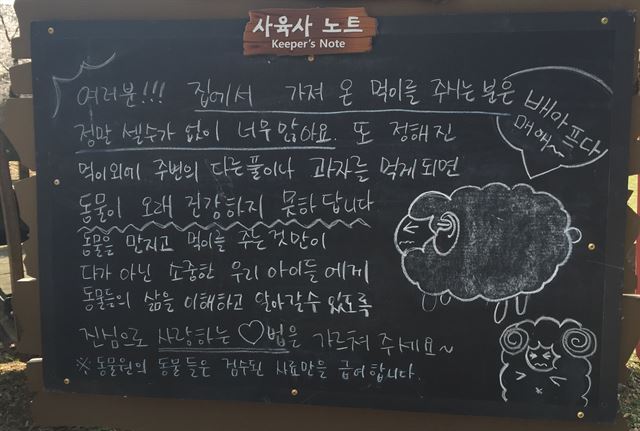 사육사 노트
Keeper's Note
여러분!!! 집에서 가져 온 먹이를 주시는 분은
정말 셀수가 없이 너무 많아요. 또 정해진
먹이외에 주변의 다른풀이나 과자를 먹게되면
동물이 오래 건강하지 못하답니다
동물을 만지고 먹이를 주는것만이
다가 아닌 소중한 우리 아이들에게
동물들의 삶을 이해하고 알아갈수 있도록
진심으로 사랑하는 ♡법을 가르쳐 주세요~
※ 동물원의 동물들은 검수된 사료만을 급여합니다.
배아프다
매애~